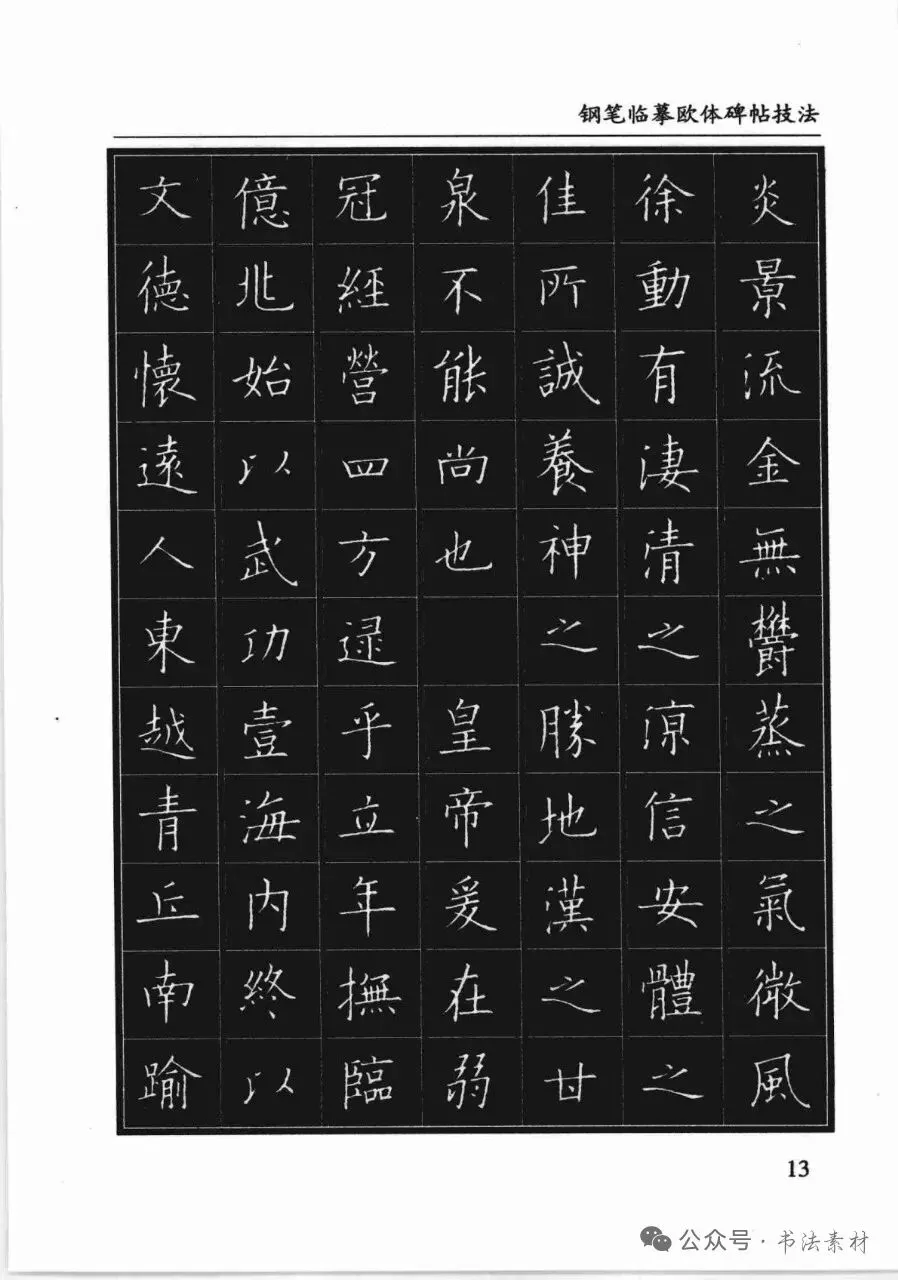 钢笔临摹欧体碑帖技法
炎景流金無欝蒸之氣微風
徐動有淒清之凉信安體之
佳所誠養神之勝地漢之甘
泉不能尚也 皇帝爰在弱
冠經營四方逯乎立年撫臨
億兆始以武功壹海内終以
文德懷遠人東越青丘南踰
13
公众号·书法素材